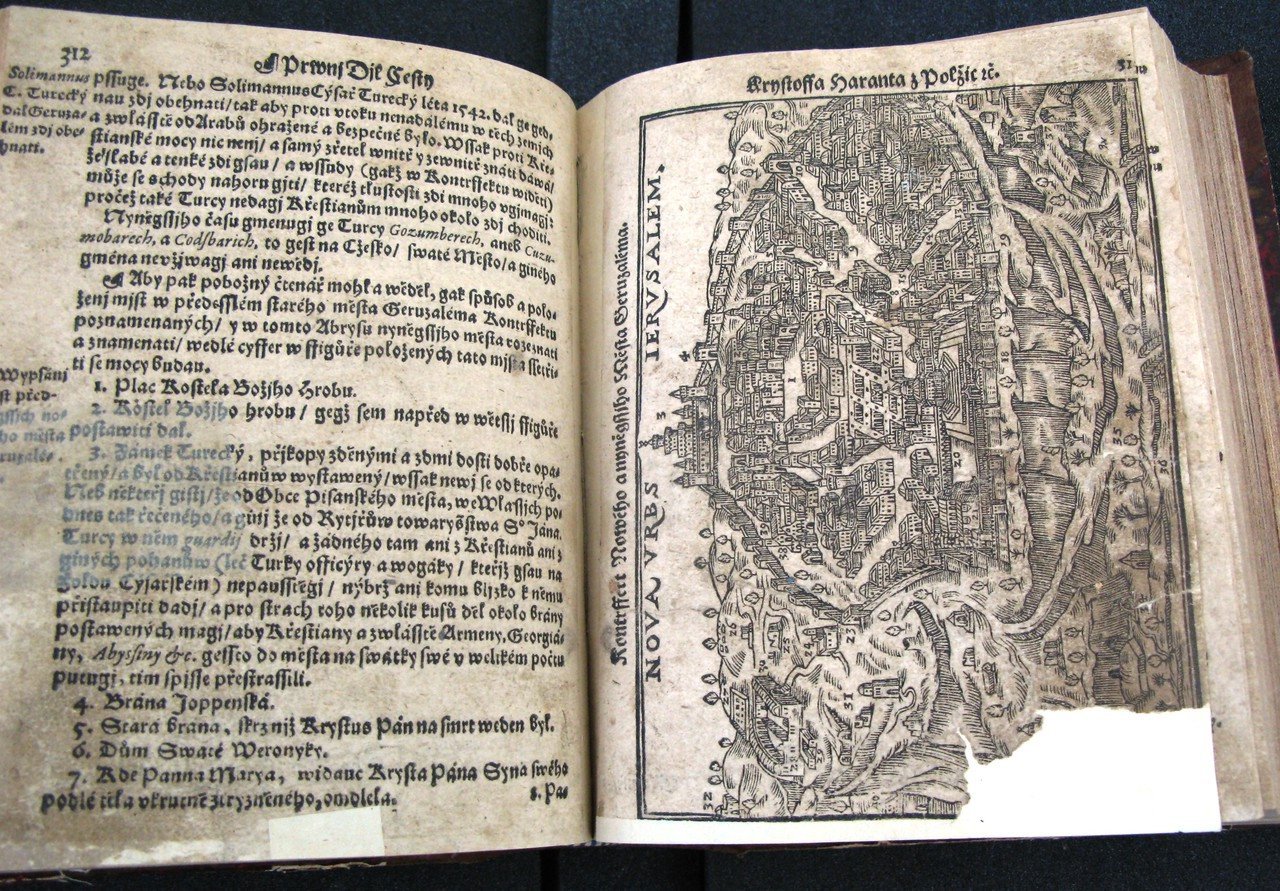 312
❡ Prwnj Djl Cesty
Solimannus
C. Turecký
dal Geruza-
lém zdj obe-
hnati.
pssuge. Nebo Solimannus Cýsař Turecký léta 1542. dal ge ged-
nau zdj obehnati/ tak aby proti vtoku nenadálému w těch zemich
a zwlásstě od Arabů ohražené a bezpečné bylo. Wssak proti Kře-
stianské mocy nic nenj/ a samý zřetel wnitř y zewnitř znáti dáwá/
že slabé a tenké zdi gsau/ a wssudy (gakž w Kontrffektu widěti)
může se schody nahoru gjti/ kteréž tlustosti zdi mnoho vgjmagj:
pročež také Turcy nedagj Křestianům mnoho okolo zdj choditi.
Nyněgssjho času gmenugj ge Turcy Gozumberech, aneb Cuzu-
mobarech, a Codsbarich, to gest na Cžesko/ swaté Město/ a giného
gména nevžjwagj ani newědj.
❡ Aby pak pobožný čtenář mohl a wěděl, gak spůsob a polo-
ženj mjst w předesslém starého města Geruzaléma Kontrffektu
poznamenaných/ y w tomto Abrysu nyněgssjho města rozeznati
a znamenati/ wedlé cyffer w ffigůře položených tato mjsta ssetři-
ti se mocy budau.
Wypsánj
1. Plac Kostela Božjho Hrobu.
2. Kostel Božjho hrobu/ gegž sem napřed w wětssj ffigůře
postawiti dal.
3. Zámek Turecký, přjkopy zděnými a zdmi dosti dobře opa-
třený/ a byl od Křestianůw wystawený/ wssak newj se od kterých.
Neb někteřj gistj/ že od Obce Pisanského města, we Wlassjch po-
dnes tak řečeného/ a ginj že od Rytjřůw towaryšstwa Sº Jana.
Turcy w něm guardij držj/ a žádného tam ani z Křestianů ani z
giných pohanůw (leč Turky officýry a wogáky/ kteřjž gsau na
žoldu Cýsařském) nepausstěgj/ nýbrž ani komu bljzko k němu
přistaupiti dadj/ a pro strach toho několik kusů děl okolo brány
postawených magj/ aby Křestiany a zwlásstě Armeny, Georgiá-
ny, Abyssiny &c. gessto do města na swátky swé v welikém počtu
putugj, tjm spjsse přestrassili.
4. Brána Joppenská.
5. Stará brána, skrz njž Krystus Pán na smrt weden byl.
6. Dům Swaté Weronyky.
7. Kde Panna Marya, widauc Krysta Pána Syna swého
podlé těla vkrutně ztryzněného, omdlela.
8. Pa-
Krystoffa Haranta z Polžic ꝛč.
Kontrffekt Nowého a nyněgssjho Města Geruzaléma.
NOVA VRBS IERVSALEM.
4
3
1
22
15
18
20
19
23
24
25
26
28
31
32
35
36